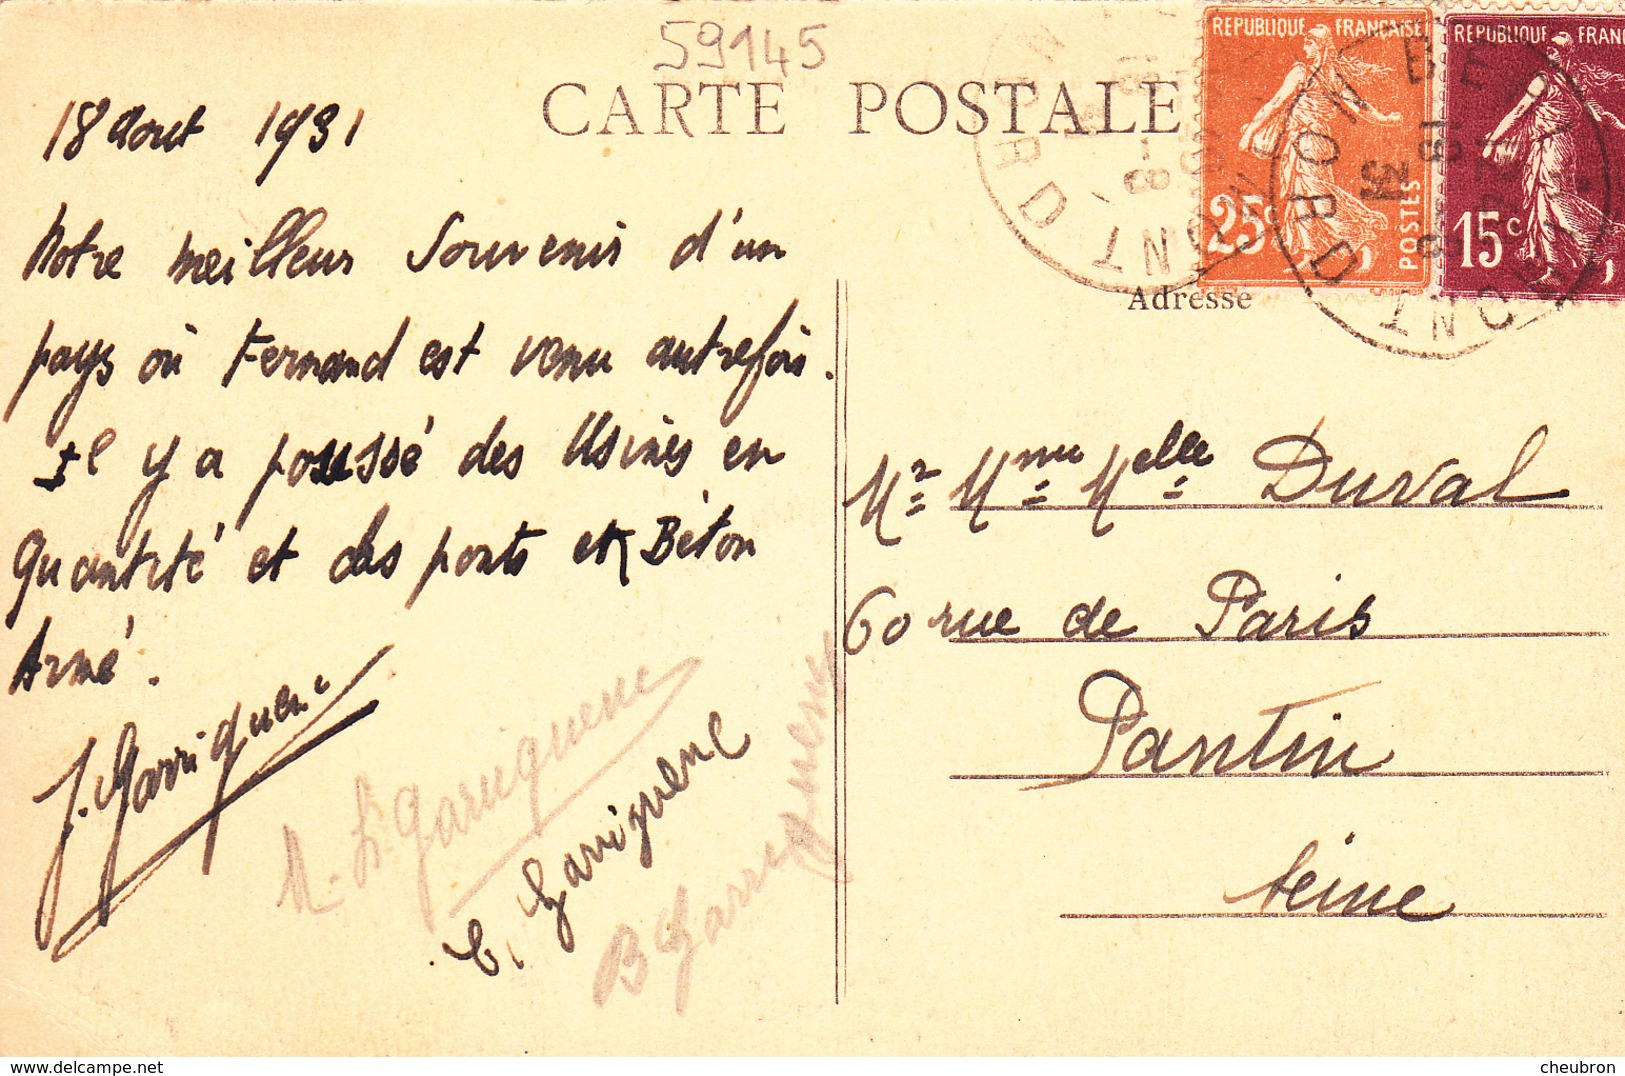 59145
CARTE POSTALE
REPUBLIQUE FRANÇAISE
25c
POSTES
REPUBLIQUE FRAN
15c
NORD
19 - 8
31
Adresse
18 Aout 1931
Notre meilleur Souvenir d'un
pays où Fernand est venu autrefois.
Il y a poussé des Usines en
Quantité et des ponts en Béton
Armé.
J. Garriguenc
M. L. Garriguenc
C. Garriguenc
B Garriguenc
Mr Mme Melle Duval
60 rue de Paris
Pantin
Seine
cheubron